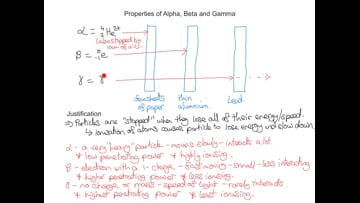 Properties of Alpha, Beta and Gamma
α = ⁴₂He²⁺
(also stopped by cm of air)
β = ⁰₋₁e
γ = γ
few sheets of paper
thin aluminium
Lead
Justification
⇒ Particles are "stopped" when they lose all of their energy/speed.
↳ ionisation of atoms causes particle to lose energy and slow down.
α - a very "heavy" particle - moves slowly - interacts a lot
* low penetrating power * highly ionising.
β - electron with a 1- charge - fast moving - small - less interacting
* higher penetrating power * less ionising.
γ - no charge or mass - speed of light - rarely interacts
* highest penetrating power * least ionising.